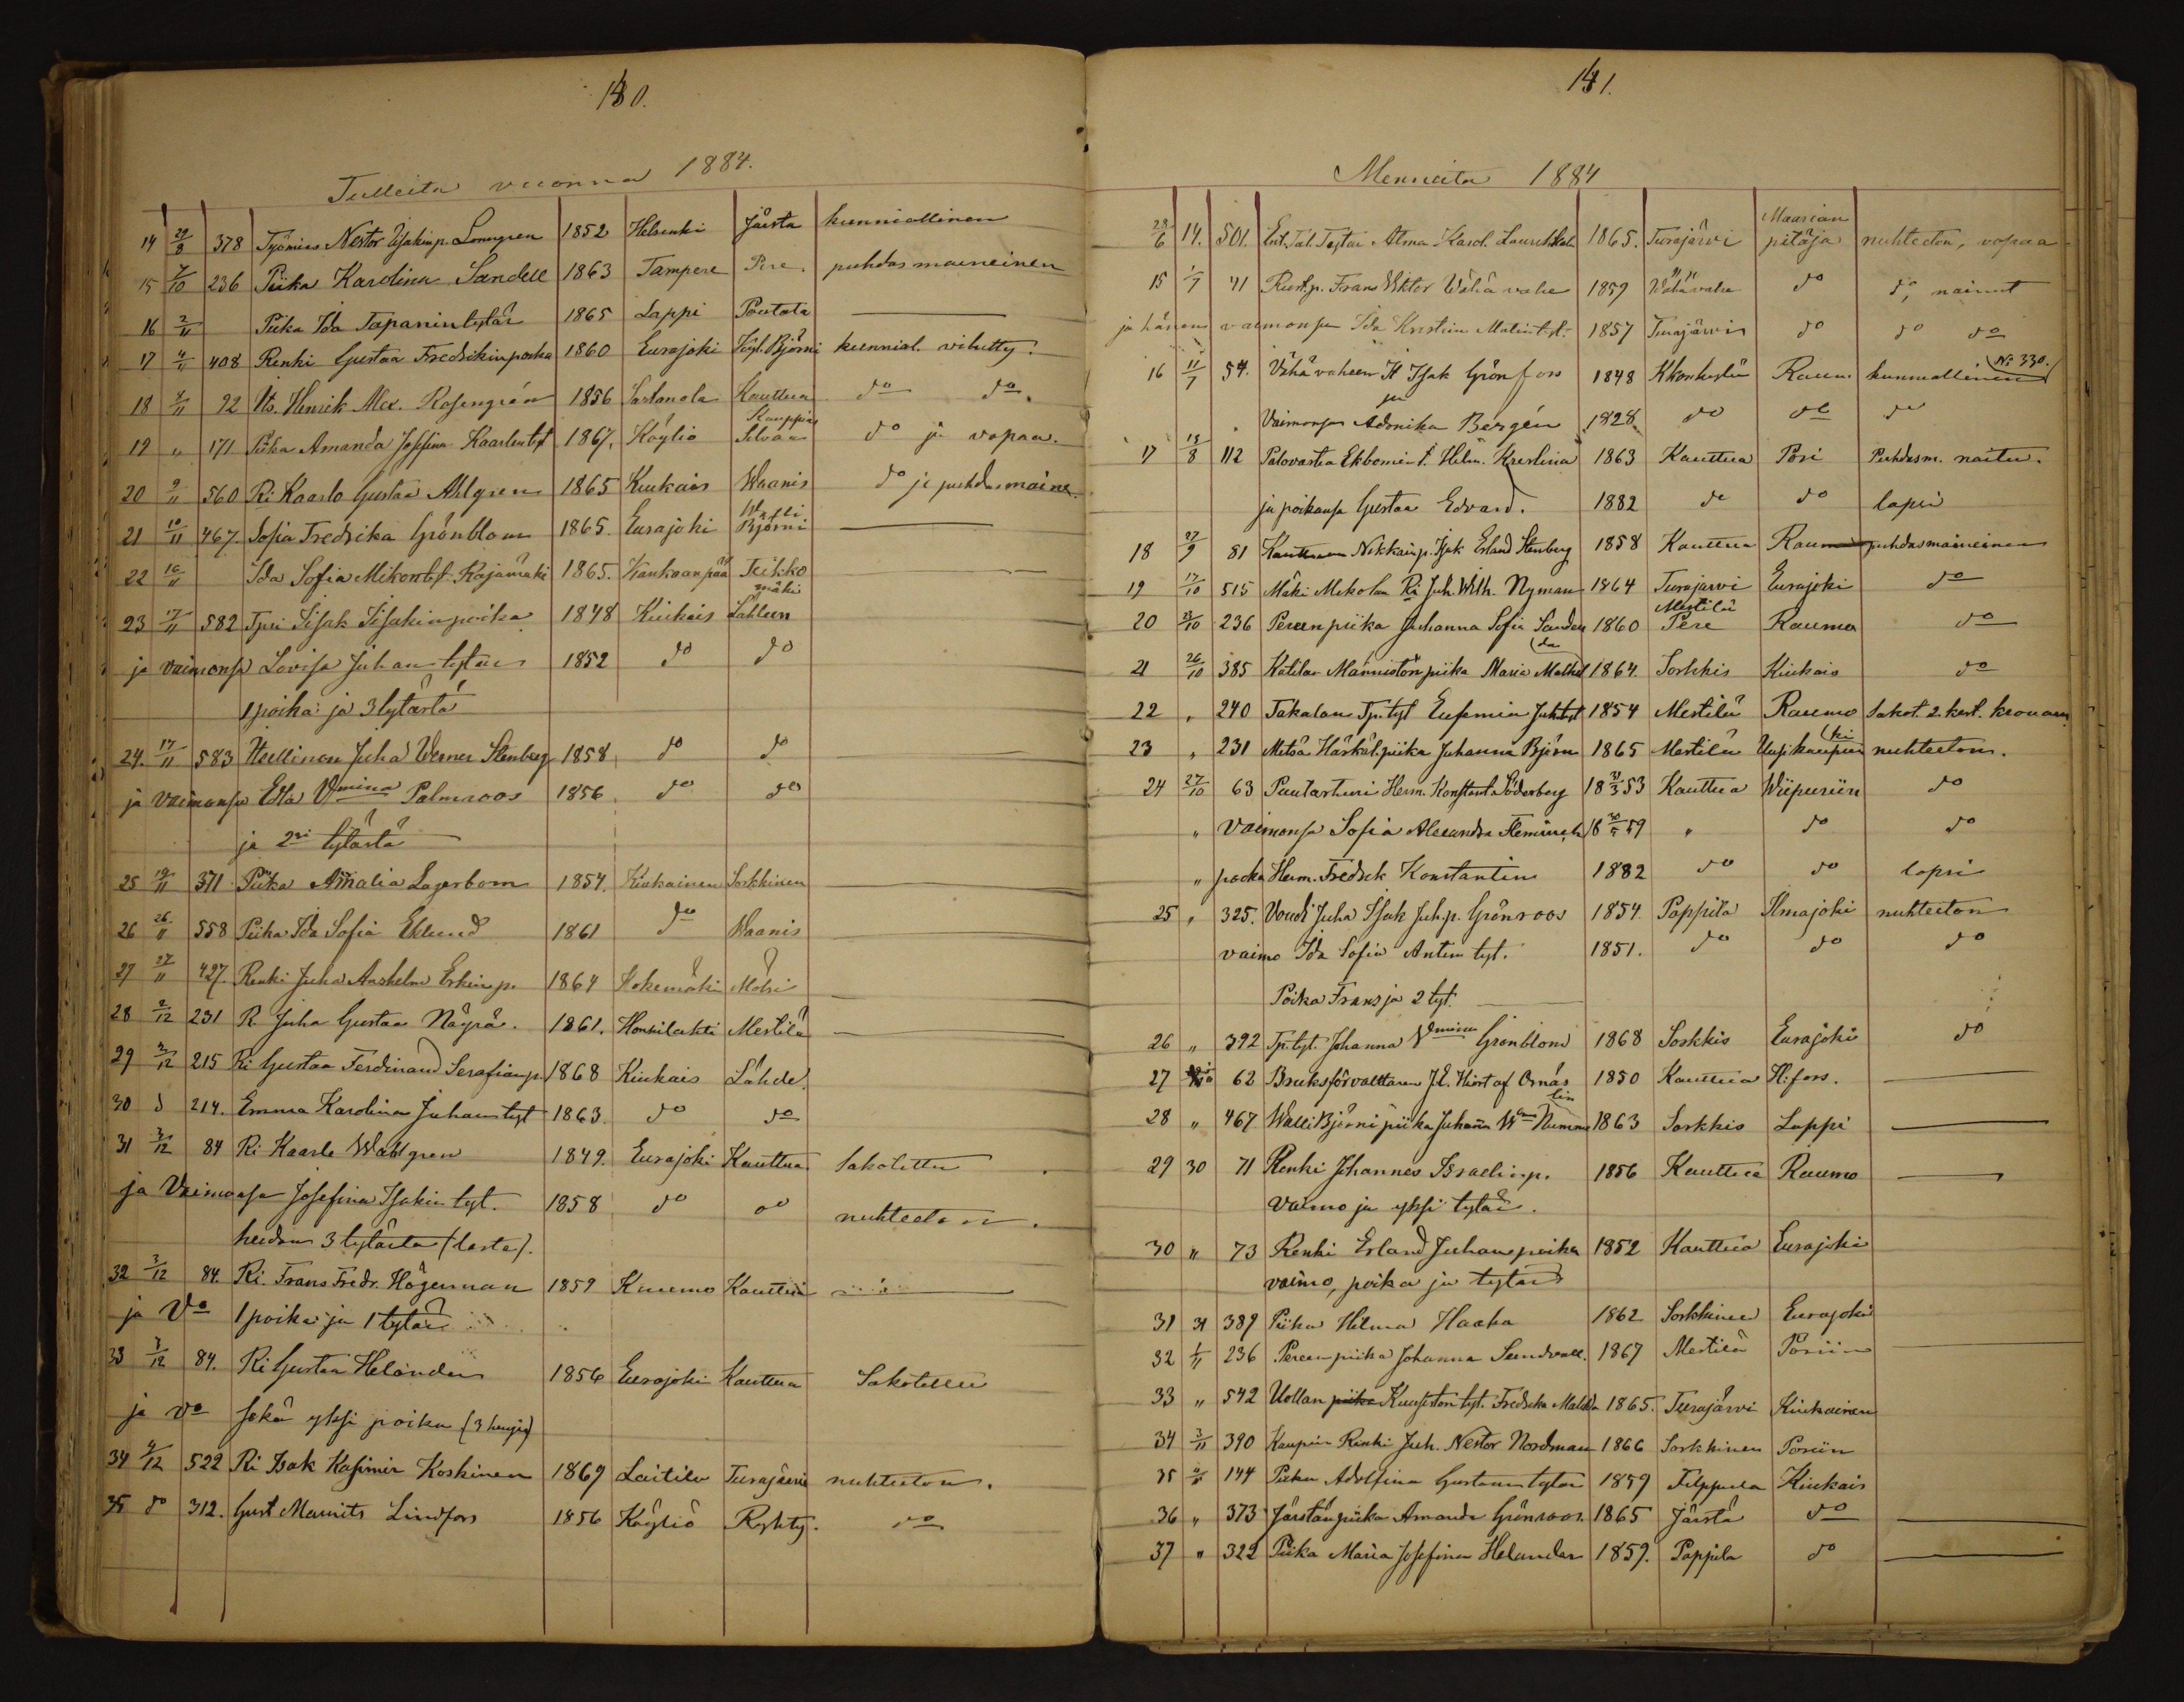 180.
Tulleita vuonna 1884.
14 29/8 378 Työmies Nestor Iisakinp. Lönngren 1852 Helsinki Järsta kunniallinen
15 7/10 236 Piika Karolina Sandell 1863 Tampere Pere. puhdasmaineinen
16 2/11 Piika Ida Tapanintytär 1865 Lappi Poutota
17 4/11 408 Renki Gustaa Fredrikinpoika 1860 Eurajoki Björni kunnial. vihitty.
18 5/11 92 Its. Henrik Alex. Rosengrén 1856 Kauttua do do.
19 " 171 Piika Amanda Josefina Kaarlentyt 1867, Köyliö Kauppila do ja vapaa.
20 9/11 560 Ri Kaarlo Gustaa Ahlgren 1865 Kiukais Waanis do ja puhdasmaine
21 10/11 467. Sofia Fredrika Grönblom 1865. Eurajoki Walli Björni
22 16/11 Ida Sofia Mikontyt. Kajamäki 1865. Kankaanpää Teikko mäki
23 17/11 582 Iisak Iisakinpoika 1848 Kiukais Lähteen
ja vaimonsa Lovisa Juhantytär 1852 do do
1 poika ja 3 tytärtä
24. 17/11 583 Itsellinen Juha Werner Stenberg 1858 do do
ja vaimonsa Edla Vmina Palmroos 1856 do do
ja 2si tytärtä
25 19/11 371 Piika Amalia Lagerbom 1854. Kiukainen Sorkkinen
26 26/11 558 Piika Ida Sofia Eklund 1861 do Waanis
27 27/11 427. Renki Juha Anshelm Erkinp. 1864 Kokemäki
28 2/12 231 R. Juha Gustaa Näyrä. 1861. Honkilahti Mestilä
29 2/12 215 Ri Gustaa Ferdinand Serafianp 1868 Kiukais Lähde.
30 d 214. Emma Karolina Juhantyt 1863. do do
31 3/12 84 Ri Kaarle Wahlgren 1849. Eurajoki Kauttua Sakotettu
ja Vaimonsa Josefina Isakintyt. 1858 do do nuhteeton.
heidän 3 tytärtä (lasta).
32 3/12 84. Ri. Frans Fredr. Högerman 1859 Kauttua
ja Vo 1 poika ja 1 tytär
33 3/12 84. Ri Gustaa Helander 1856 Eurajoki Kauttua Sakotettu
ja vo sekä yksi poika (3 henjeä)
34 4/12 522 Ri Isak Kasimir Koskinen 1869 Laitila Turajärvi nuhteeton.
35 do 312. Gust Maurits Lindfors 1856 Köyliö do
181.
Menneitä 1884
28/6 14. 501. Tytär Alma Karol. 1865. Turajärvi Maarian pitäjä nuhteeton, vapaa
15 1/7 41 Rust.p. Frans Wiktor Wähävahe 1859 Wähävahe do do, nainut
ja hänen vaimonsa Ida Kristiina Matintyt. 1857 Turajärvi do do do
16 11/7 54. Vähävaheen It Isak Grönfors 1848 Raum. kunniallinen No 330.
ja
Vaimonsa Adonika Bergén 1828 do do do
17 18/8 112 Palovartia Ekbomin t. Helm. Kristina 1863 Kauttua Pori Puhdasm. naitu.
ja poikansa Gustaa Edvard. 1882 do do lapsi
18 27/9 81 Nikkaip. Isak Erland Stenberg 1858 Kauttua Rauma puhdasmaineinen
19 17/10 515 Mäki Mikolan Ri Juh. Wilh. Nyman 1864 Turajärvi Eurajoki do
20 23/10 236 Pereen piika Juhanna Sofia 1860 Mestilä Pere Rauma do
21 26/10 385 Katilan Männistön piika Maria Mathil da 1864. Sorkkis Kiukais do
22 " 240 Takalan Tp. tyt Eufemia Juh.tyt 1854 Mestilä Raumo Sakot. 2. kert.
23 " 231 Metsä Härkälpiika Juhanna Björn 1865 Mestilä Uusikaupun ki nuhteeton.
24 27/10 63 Puutarhuri Herm. Konstant. Söderberg 18 31/3 53 Kauttua Wiipuriin do
" Vaimonsa Sofia Alexandra Fleming 18 30/5 59 " do do
" poika Herm. Fredrek Konstantin 1882 do do lapsi
25 " 325. Voudi Juha Isak Juh.p. Grönroos 1854. Pappila Ilmajoki nuhteeton
vaimo Ida Sofia Antin tyt. 1851. do do do
Poika Frans ja 2 tyt.
26 " 392 Tp. tyt. Johanna Vmina Grönblom 1868 Sorkkis Eurajoki do
27 62 Bruksförvalttaren J. E. Thort af Ornäs 1850 Kauttua H:fors.
28 " 467 Walli Björni piika Juhanna Wna Numme lin 1863 Sorkkis Lappi
29 30 71 Renki Johannes Israelinp. 1856 Kauttua Raumo
vaimo ja yksi tytär.
30 " 73 Renki Erland Juhanpoika 1852 Kauttua Eurajoki
vaimo, poika ja tytär
31 31 389 Piika Hilma Haaka 1862 Sorkkinen Eurajoki
32 1/11 236 Pereen piika Johanna Sundvall. 1867 Mestilä Poriin
33 " 542 Uollan piika Kuusiston tyt. Fredrika Matilda 1865. Turajärvi Kiukainen
34 3/11 390 Kaupin Renki Juh. Nestor Nordman 1866 Sorkkinen Poriin
35 144 Piika Adolfina Gustaan tytär 1859 Filppula Kiukais
36 " 373 Järstän piika Amanda Grönroos. 1865 Järstä do
37 " 322 Piika Maria Josefina Helander 1859. Pappila do